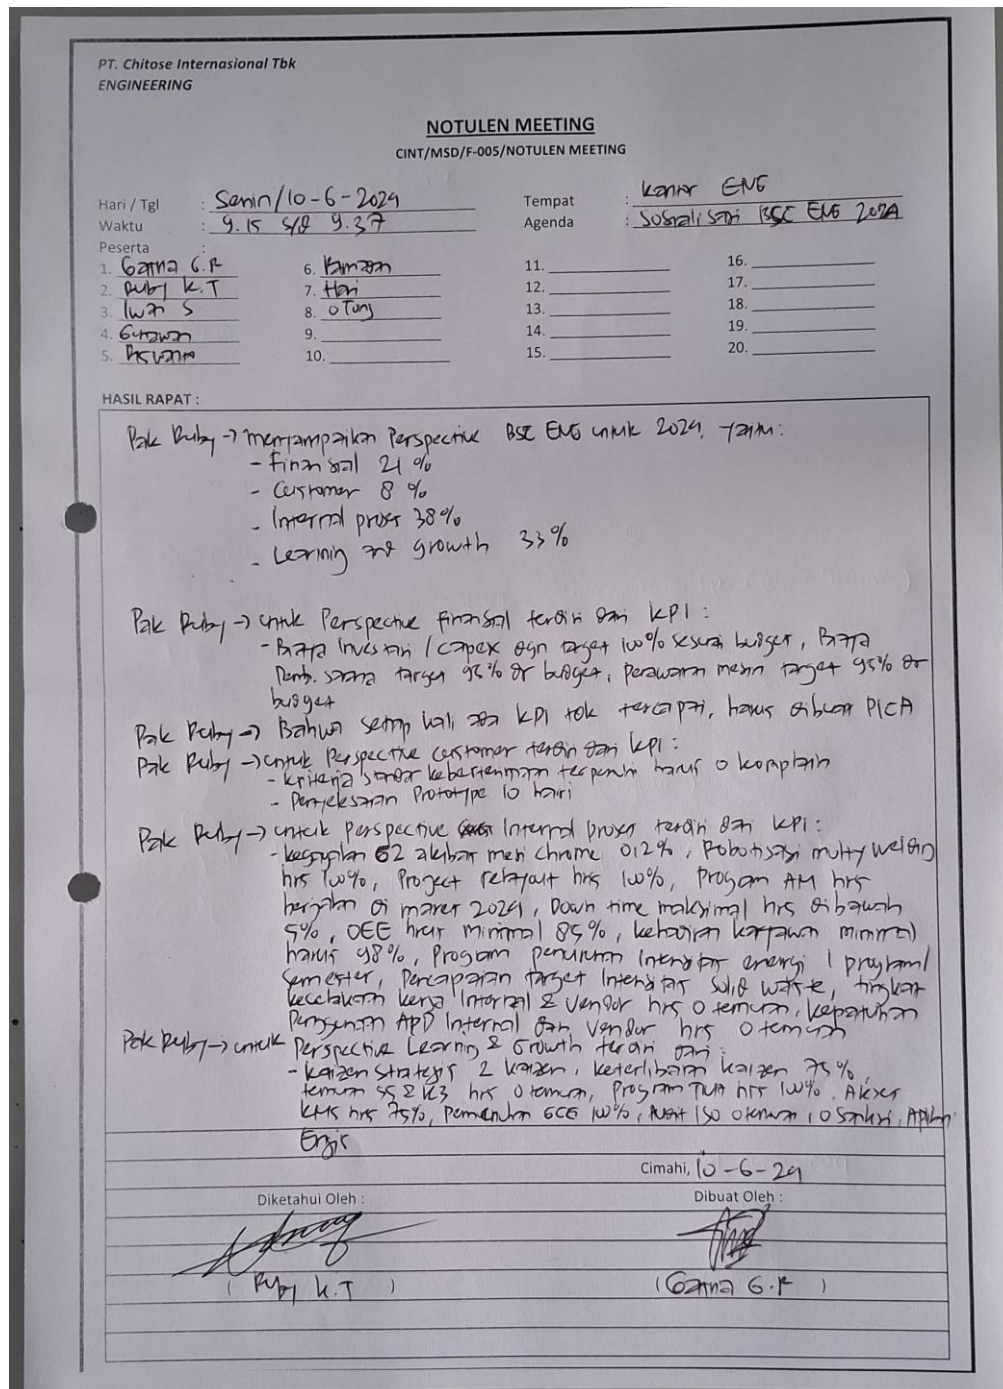 PT. Chitose Internasional Tbk
ENGINEERING
NOTULEN MEETING
CINT/MSD/F-005/NOTULEN MEETING
Hari / Tgl : Senin/10-6-2024
Tempat : Kantor ENG
Waktu : 9.15 s/d 9.37
Agenda : Sosialisasi BSC ENG 2024
Peserta :
1. Ganna G.R 6. 11. 16.
2. Ruby K.T 7. Hari 12. 17.
3. Iwan S 8. Otong 13. 18.
4. Gunawan 9. 14. 19.
5. 10. 15. 20.
HASIL RAPAT :
Pak Ruby → menyampaikan Perspective BSC ENG untuk 2024, yaitu:
- Finansial 21 %
- Customer 8 %
- Internal proses 38%
- Learning and growth 33%
Pak Ruby → untuk Perspective finansial terdiri dari KPI :
- Biaya Investasi / capex dgn target 100% sesuai budget, Biaya
Pemb. sarana target 95% dr budget, perawatan mesin target 95% dr
budget
Pak Ruby → Bahwa setiap kali ada KPI tdk tercapai, harus dibuat PICA
Pak Ruby → untuk Perspective customer terdiri dari KPI :
- Kriteria standar keberterimaan terpenuhi harus 0 komplain
- Penyelesaian Prototype 10 hari
Pak Ruby → untuk Perspective Internal proses terdiri dari KPI :
- Kegagalan G2 akibat mesin chrome 0,2%, Robotisasi multy welding
hrs 100%, Project relayout hrs 100%, Program AM hrs
berjalan di maret 2024, Down time maksimal hrs dibawah
5%, OEE hrus minimal 85%, kehadiran karyawan minimal
harus 98%, Program penurunan Intensitas energi 1 program/
Semester, Pencapaian target Intensitas Solid waste, tingkat
kecelakaan kerja Internal & vendor hrs 0 temuan, kepatuhan
Penggunaan APD Internal dan Vendor hrs 0 temuan
Pak Ruby → untuk Perspective Learning & Growth terdiri dari :
- Kaizen Strategis 2 kaizen, keterlibatan kaizen 75%,
temuan 5S & K3 hrs 0 temuan, Program TNA hrs 100%. Akses
KMS hrs 75%, pemenuhan GCG 100%, Audit ISO 0 temuan, 0 Sanksi,
Cimahi, 10-6-24
Diketahui Oleh :
Dibuat Oleh :
( Ruby K.T )
( Ganna G.R )